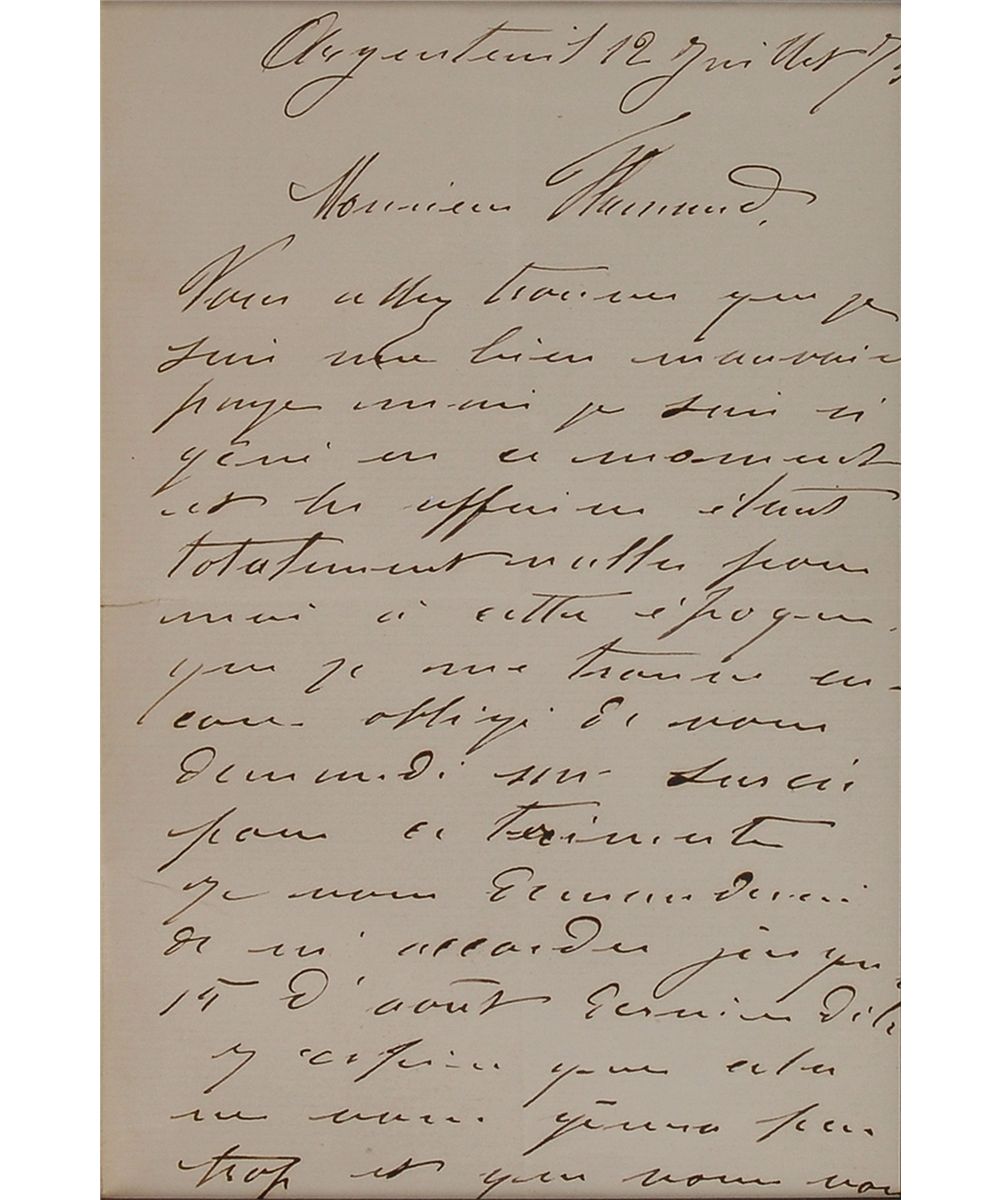 Argenteuil 12 Juillet 7
Monsieur Flament,
Vous allez trouver que je
suis une bien mauvaise
paye mais je suis si
gêné en ce moment
et les affaires étant
totalement nulles pour
moi à cette époque,
que je me trouve en-
core obligé de vous
demandé un sursis
pour ce
Je vous demanderai
de m'accorder jusqu'
15 d'août dernier délai
J'espère que cela
ne vous gênera pas
trop et que vous vou